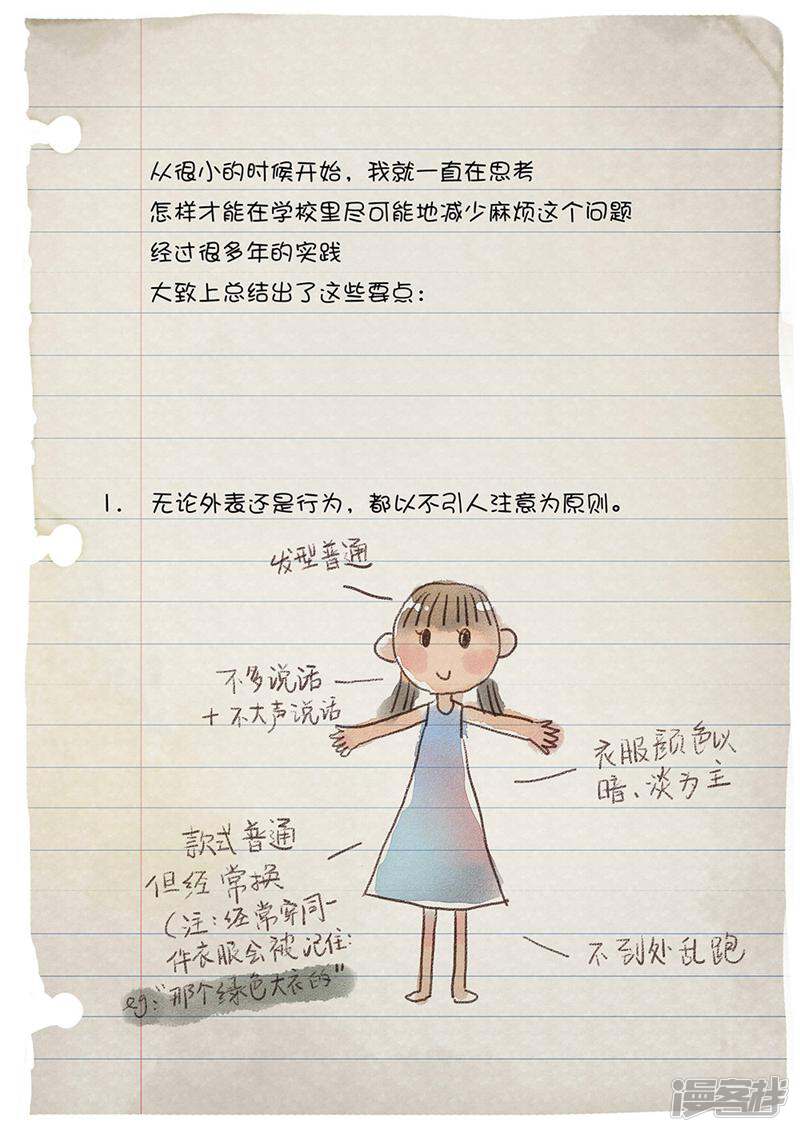 从很小的时候开始，我就一直在思考
怎样才能在学校里尽可能地减少麻烦这个问题
经过很多年的实践
大致上总结出了这些要点：
1. 无论外表还是行为，都以不引人注意为原则。
发型普通
不多说话
+不大声说话
衣服颜色以
暗、淡为主
款式普通
但经常换
(注：经常穿同一
件衣服会被记住：
eg："那个绿色大衣的"
不到处乱跑
漫客栈